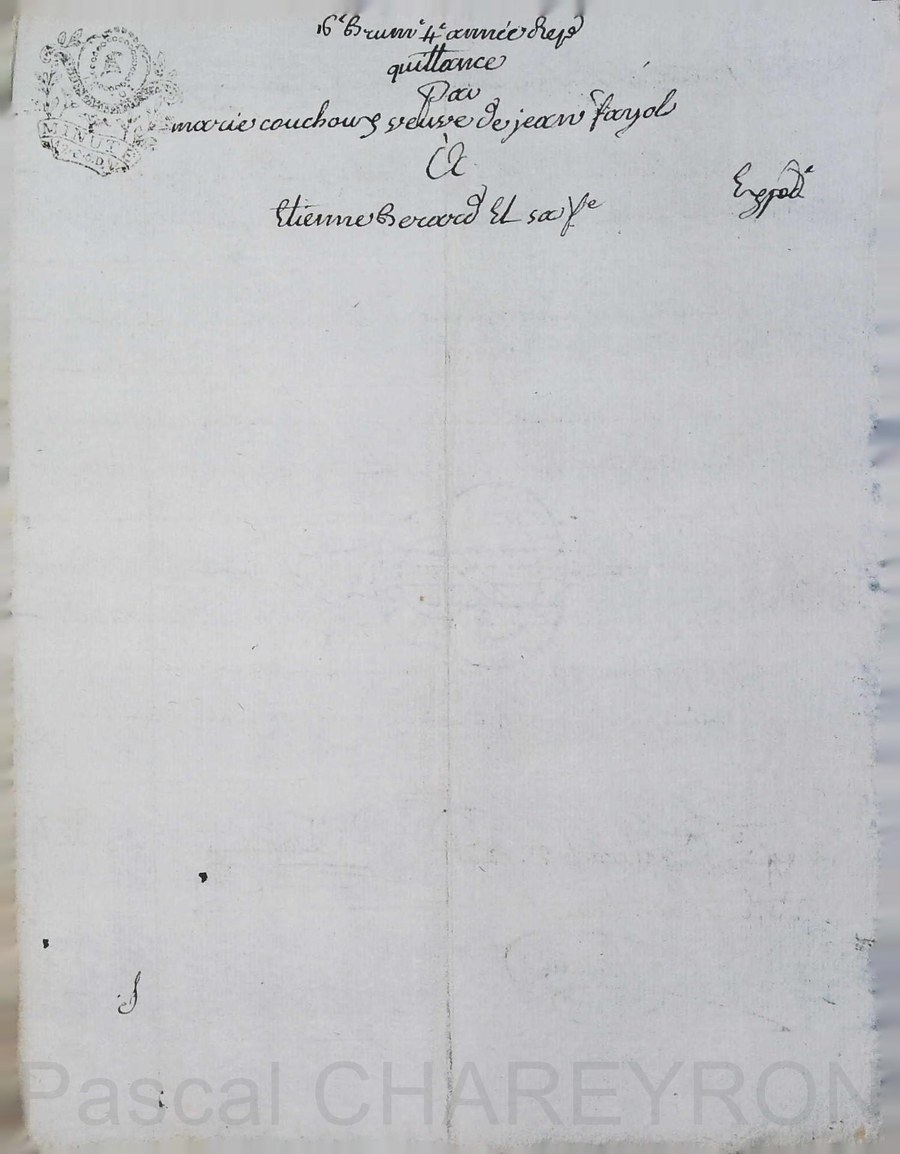 16e Brumre 4e année Rep
quittance
Par
marie couchoux veuve de jean fayol
à
Etienne Berard Et sa fe
Expede
MINUTE
Pascal CHAREYRON